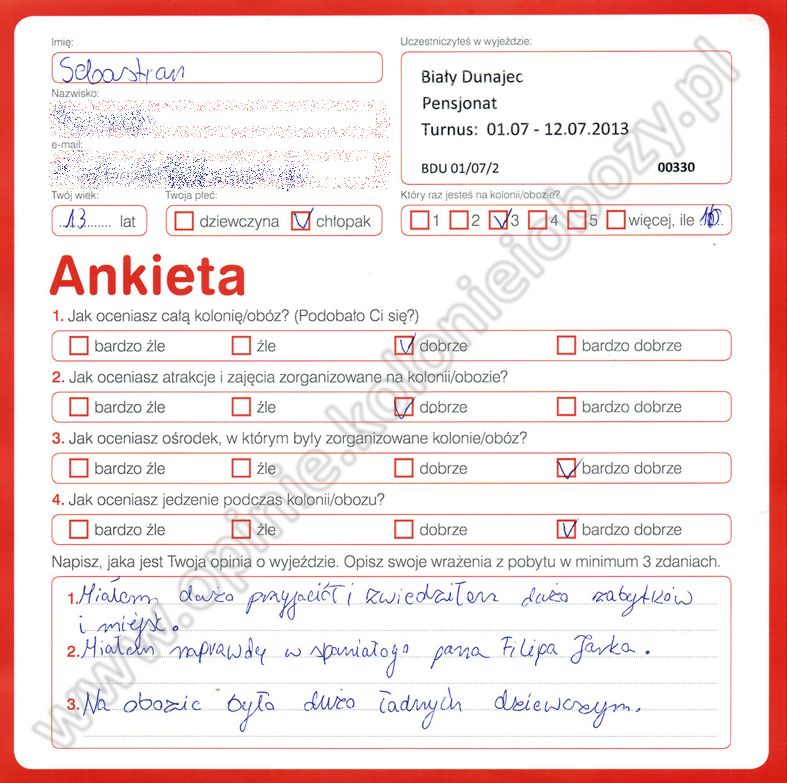 Imię:
Sebastian
Uczestniczyłeś w wyjeździe:
Biały Dunajec
Pensjonat
Turnus: 01.07 - 12.07.2013
BDU 01/07/2 00330
Nazwisko:
e-mail:
Twój wiek:
13 lat
Twoja płeć:
dziewczyna chłopak
Który raz jesteś na kolonii/obozie?
1 2 3 4 5 więcej, ile
Ankieta
1. Jak oceniasz całą kolonię/obóz? (Podobało Ci się?)
bardzo źle źle dobrze bardzo dobrze
2. Jak oceniasz atrakcje i zajęcia zorganizowane na kolonii/obozie?
bardzo źle źle dobrze bardzo dobrze
3. Jak oceniasz ośrodek, w którym były zorganizowane kolonie/obóz?
bardzo źle źle dobrze bardzo dobrze
4. Jak oceniasz jedzenie podczas kolonii/obozu?
bardzo źle źle dobrze bardzo dobrze
Napisz, jaka jest Twoja opinia o wyjeździe. Opisz swoje wrażenia z pobytu w minimum 3 zdaniach.
1. Miałem dużo przyjaciół i zwiedziłem dużo zabytków
i miejsc.
2. Miałem naprawdę wspaniałego pana Filipa Jarka.
3. Na obozie było dużo ładnych dziewczym.
www.opinie.kolonieiobozy.pl